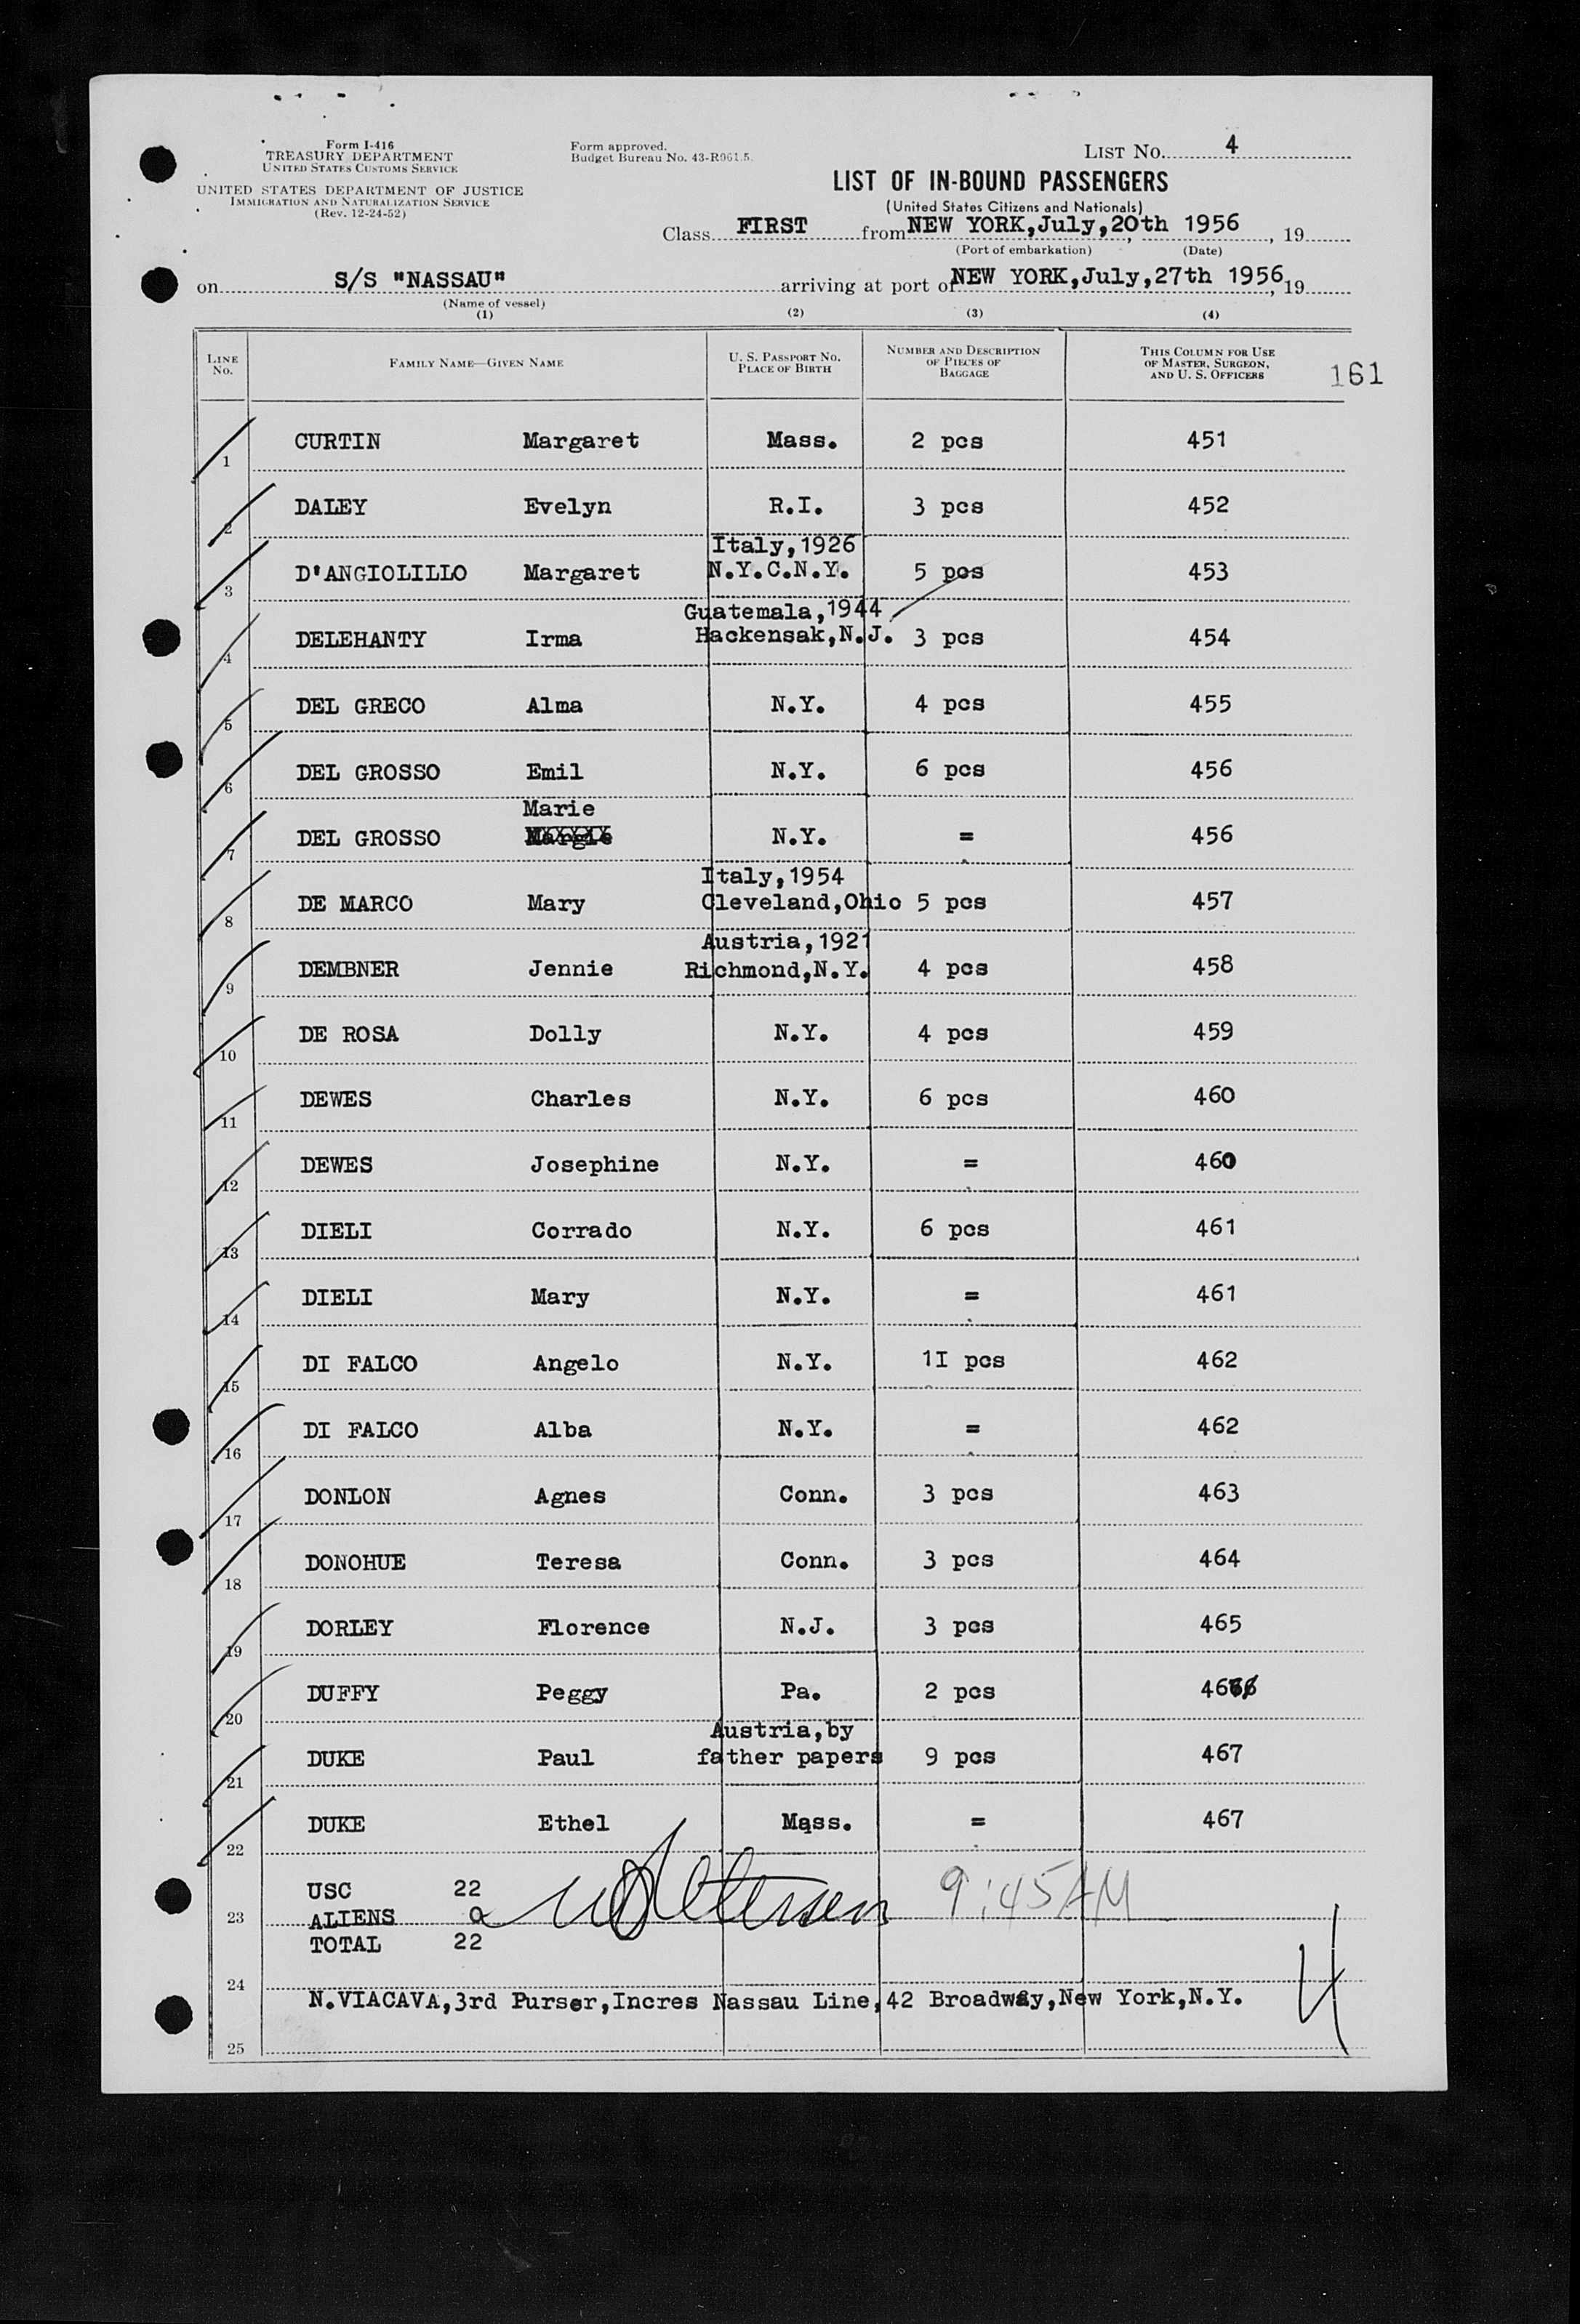 Form I-416
TREASURY DEPARTMENT
UNITED STATES CUSTOMS SERVICE
UNITED STATES DEPARTMENT OF JUSTICE
IMMIGRATION AND NATURALIZATION SERVICE
(Rev. 12-24-52)
Form approved.
Budget Bureau No. 43-R061.5.
LIST No. 4
LIST OF IN-BOUND PASSENGERS
(United States Citizens and Nationals)
Class FIRST from NEW YORK,July,20th 1956, 19
(Port of embarkation) (Date)
on S/S "NASSAU" arriving at port of NEW YORK,July,27th 1956, 19
(Name of vessel)
(1) (2) (3) (4)
LINE No. FAMILY NAME—GIVEN NAME U. S. PASSPORT No. PLACE OF BIRTH NUMBER AND DESCRIPTION OF PIECES OF BAGGAGE THIS COLUMN FOR USE OF MASTER, SURGEON, AND U. S. OFFICERS 161
1 CURTIN Margaret Mass. 2 pcs 451
2 DALEY Evelyn R.I. 3 pcs 452
Italy,1926
3 D'ANGIOLILLO Margaret N.Y.C.N.Y. 5 pcs 453
Guatemala,1944
4 DELEHANTY Irma Hackensak,N.J. 3 pcs 454
5 DEL GRECO Alma N.Y. 4 pcs 455
6 DEL GROSSO Emil N.Y. 6 pcs 456
Marie
7 DEL GROSSO Margie N.Y. = 456
Italy,1954
8 DE MARCO Mary Cleveland,Ohio 5 pcs 457
Austria,1921
9 DEMBNER Jennie Richmond,N.Y. 4 pcs 458
10 DE ROSA Dolly N.Y. 4 pcs 459
11 DEWES Charles N.Y. 6 pcs 460
12 DEWES Josephine N.Y. = 460
13 DIELI Corrado N.Y. 6 pcs 461
14 DIELI Mary N.Y. = 461
15 DI FALCO Angelo N.Y. 1I pcs 462
16 DI FALCO Alba N.Y. = 462
17 DONLON Agnes Conn. 3 pcs 463
18 DONOHUE Teresa Conn. 3 pcs 464
19 DORLEY Florence N.J. 3 pcs 465
20 DUFFY Peggy Pa. 2 pcs 466
Austria,by
21 DUKE Paul father papers 9 pcs 467
22 DUKE Ethel Mass. = 467
USC 22 9:45AM
23 ALIENS 0
TOTAL 22
24
N.VIACAVA,3rd Purser,Incres Nassau Line,42 Broadway,New York,N.Y. 4
25